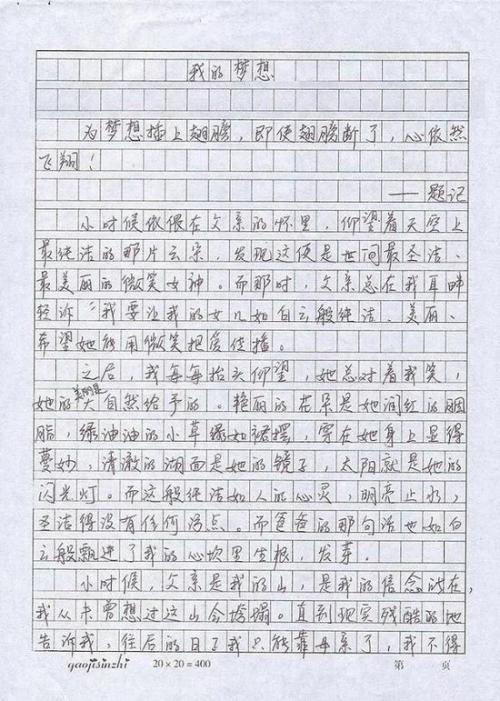 我的梦想
为梦想插上翅膀，即使翅膀断了，心依然
飞翔！
——题记
小时候依偎在父亲的怀里，仰望着天空上
最纯洁的那片云朵，发现这便是世间最圣洁、
最美丽的微笑女神。而那时，父亲总在我耳畔
轻诉“我要让我的女儿如白云般纯洁、美丽、
希望她能用微笑把爱传播。
之后，我每每抬头仰望，她总对着我笑，
她的美丽是大自然给予的。艳丽的花朵是她润红的胭
脂，绿油油的小草绿如裙摆，穿在她身上显得
曼妙，清澈的湖面是她的镜子，太阳就是她的
闪光灯。而这般纯洁如人的心灵，明亮止水，
圣洁得没有任何污点。而爸爸的那句话也如白
云般飘进了我的心坎里生根，发芽。
小时候，父亲是我的山，是我的信念所在，
我从未曾想过这山会垮蹋。直到现实残酷的地
告诉我，往后的日子我只能靠母亲了，我不得
gaojisinzhi
20×20=400
第 页